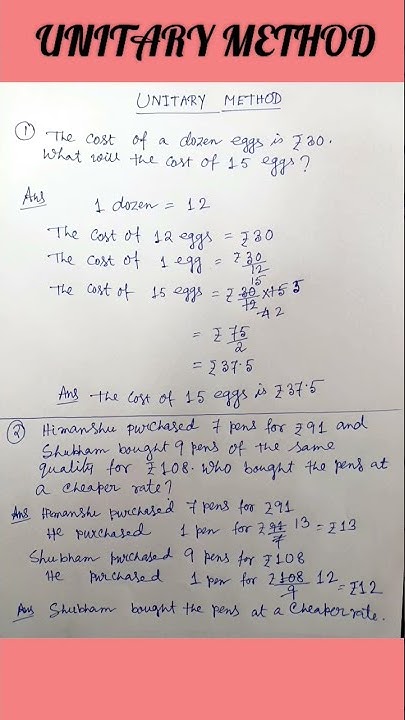 UNITARY METHOD
UNITARY METHOD
① The cost of a dozen eggs is ₹30.
What will the cost of 15 eggs?
Ans
1 dozen = 12
The cost of 12 eggs = ₹30
The cost of 1 egg = ₹30/12
The cost of 15 eggs = ₹ 30/12 × 15 5
15
4 2
= ₹ 75/2
= ₹37.5
Ans The cost of 15 eggs is ₹37.5
② Himanshu purchased 7 pens for ₹91 and
Shubham bought 9 pens of the same
quality for ₹108. Who bought the pens at
a cheaper rate?
Ans Himanshu purchased 7 pens for ₹91
He purchased 1 pen for ₹91/7 13 = ₹13
Shubham purchased 9 pens for ₹108
He purchased 1 pen for ₹108/9 12 = ₹12
Ans Shubham bought the pens at a cheaper rate.